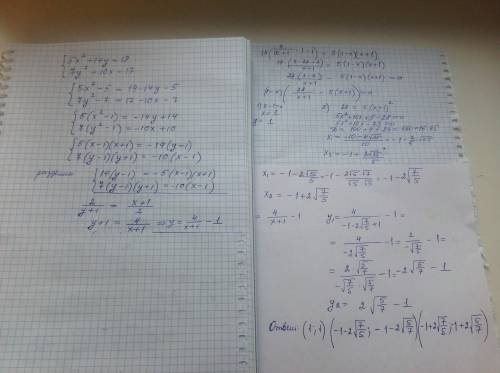 {5x²+14y=19
{7y²+10x=17
{5x²-5=19-14y-5
{7y²-7=17-10x-7
{5(x²-1)=-14y+14
{7(y²-1)=-10x+10
{5(x-1)(x+1)=-14(y-1)
{7(y-1)(y+1)=-10(x-1)
разделим {14(y-1)=-5(x-1)(x+1)
{7(y-1)(y+1)=-10(x-1)
2/(y+1)=(x+1)/2
y+1=4/(x+1) ⇒ y=4/(x+1)-1
2) 28=5(x+1)²
5x²+10x+5-28=0
5x²+10x-23=0
x₁=-1-2√(7/5)
x₂=-1+2√(7/5)
=4/(x+1)-1 y₁=4/(-1-2√(7/5)+1)-1=
=4/(-2√(7/5))-1=2/(-√(7/5))-1=
=(2·√(5/7))/(-√(7/5)·√(5/7))-1=-2√(5/7)-1
y₂=2√(5/7)-1
Ответ: (1;1) (-1-2√(7/5);-1-2√(5/7)) (-1+2√(7/5);-1+2√(5/7))